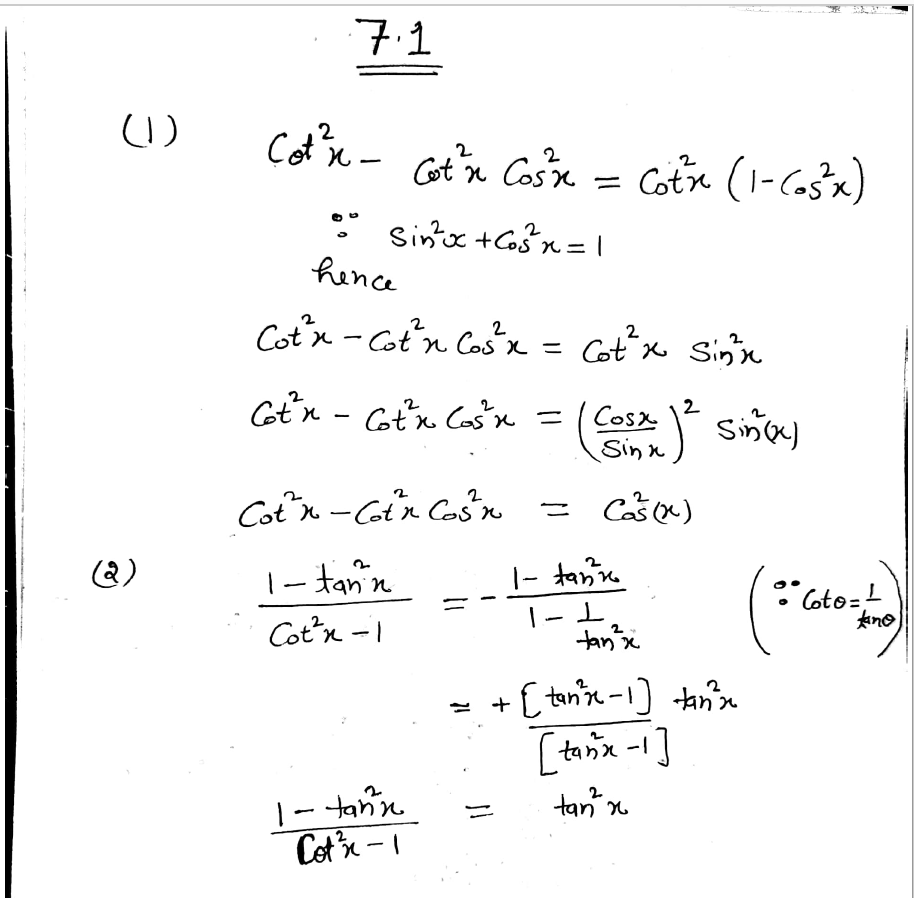 7.1
(1) Cot²x - Cot²x Cos²x = Cot²x (1-Cos²x)
∵ Sin²x + Cos²x = 1
hence
Cot²x - Cot²x Cos²x = Cot²x Sin²x
Cot²x - Cot²x Cos²x = (Cosx/Sinx)² Sin²(x)
Cot²x - Cot²x Cos²x = Cos²(x)
(2) (1 - tan²x)/(Cot²x - 1) = - (1 - tan²x)/(1 - 1/tan²x) (∵ Cotθ = 1/tanθ)
= + [tan²x - 1] tan²x/[tan²x - 1]
(1 - tan²x)/(Cot²x - 1) = tan²x